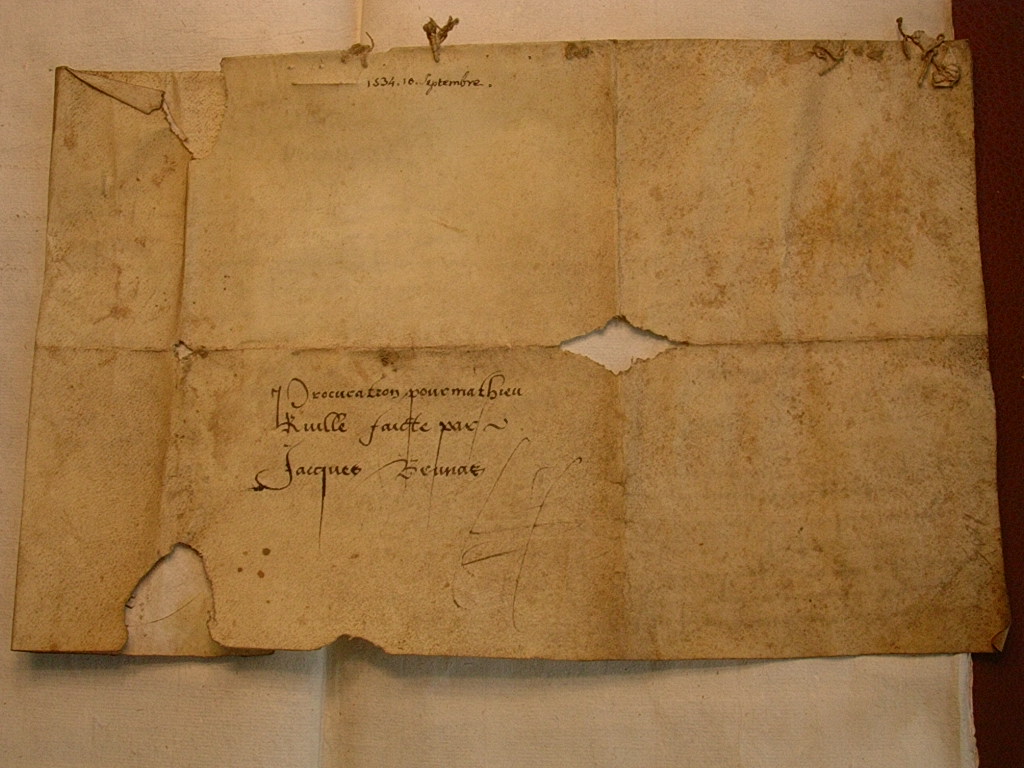 1534. 10. Septembre.
Procuration pour mathieu
Ruille faicte par
Jacques Brunas